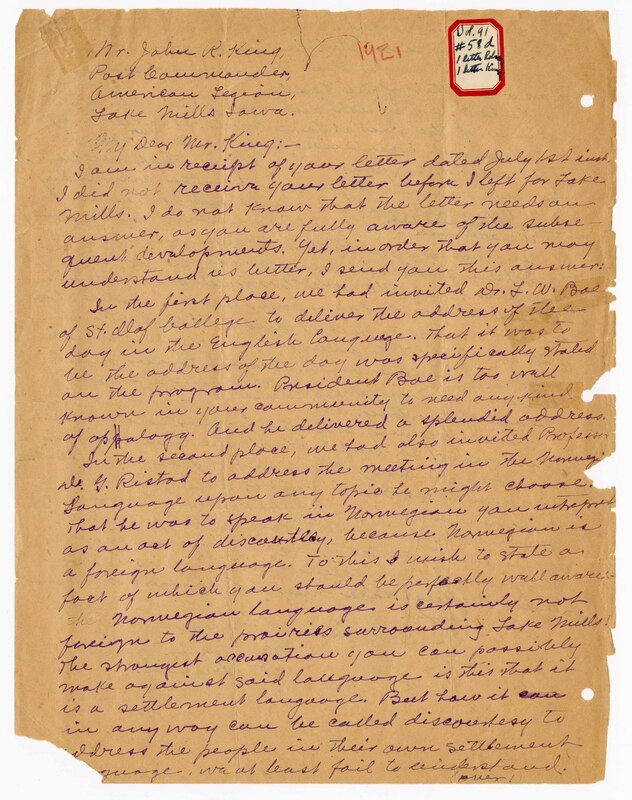 Mr. John R. King,
Post Commander,
American Legion,
Lake Mills Iowa.
1921
Vol. 91
#58d
1 letter
1 letter King
My Dear Mr. King:-
I am in receipt of your letter dated July 1st inst.
I did not receive your letter before I left for Lake
Mills. I do not know that the letter needs an
answer, as you are fully aware of the subse-
quent developments. Yet, in order that you may
understand us better, I send you this answer:
In the first place, we had invited Dr. L. W. Boe
of St. Olaf College to deliver the address of the
day in the English language. That it was to
be the address of the day was specifically stated
on the program. President Boe is too well
known in your community to need any kind
of appalogy. And he delivered a splendid address.
In the second place, we had also invited Professor
D. G. Ristad to address the meeting in the Norwegi
language upon any topic he might choose.
That he was to speak in Norwegian you interpret
as an act of discourtesy, because Norwegian is
a foreign language. To this I wish to state a
fact of which you should be perfectly well aware:
the Norwegian language is certainly not
foreign to the prairies surrounding Lake Mills!
The strongest accusation you can possibly
make against said language is this that it
is a settlement language. But how it can
in any way can be called discourtesy to
address the people in their own settlement
guage, we at least fail to understand.
(over!)